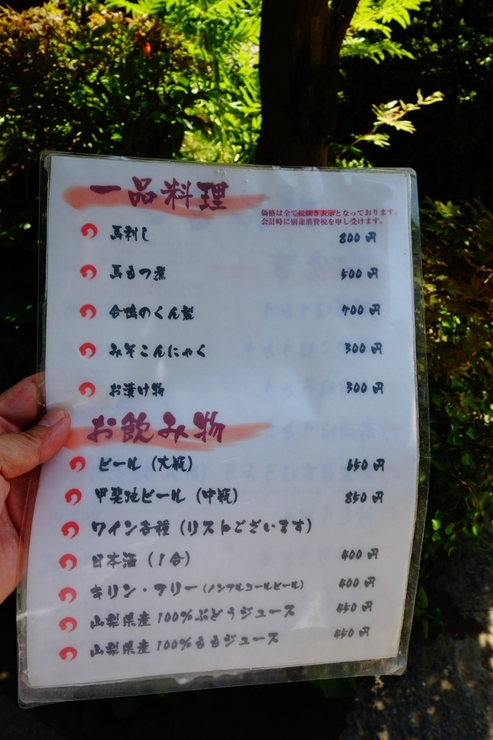 一品料理
価格は全て税抜き表示となっております。
会計時に別途消費税を申し受けます。
馬刺し 800円
馬もつ煮 500円
合鴨のくん製 700円
みそこんにゃく 300円
お漬け物 300円
お飲み物
ビール(大瓶) 650円
甲斐地ビール(中瓶) 850円
ワイン各種(リストございます)
日本酒(1合) 400円
キリン・フリー(ノンアルコールビール) 400円
山梨県産100%ぶどうジュース 450円
山梨県産100%ももジュース 450円